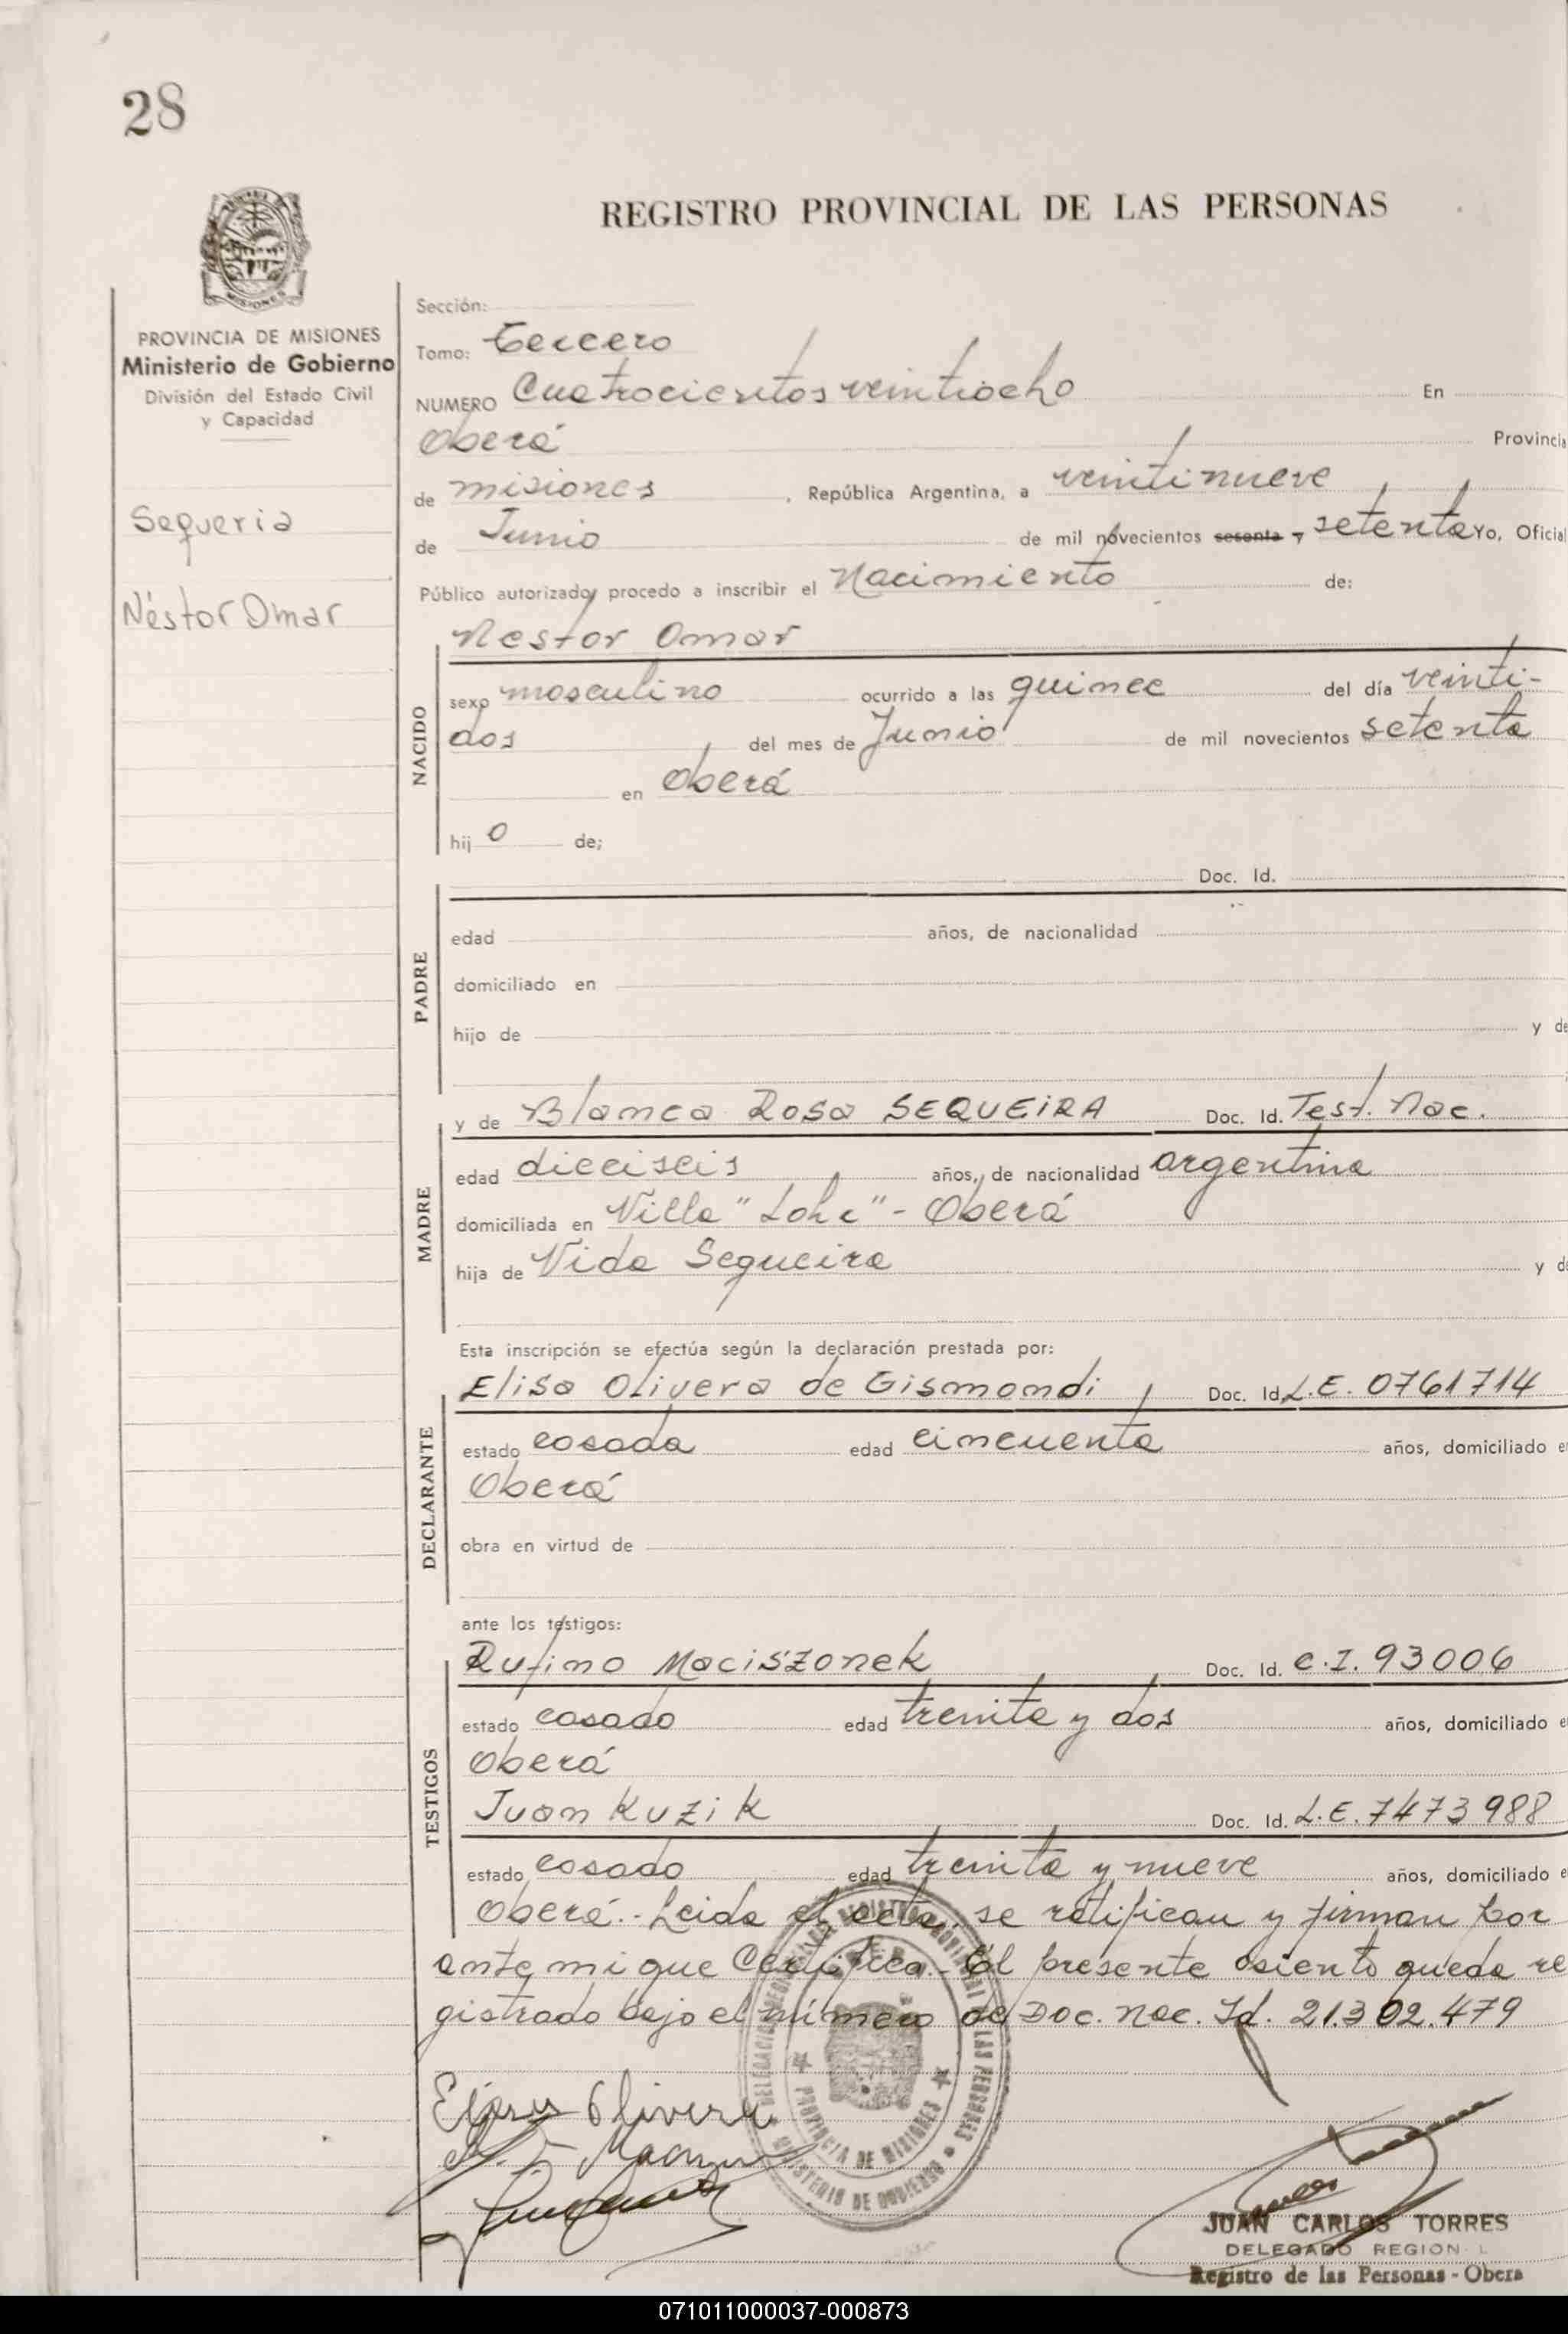 28
REGISTRO PROVINCIAL DE LAS PERSONAS
MISIONES
PROVINCIA DE MISIONES
Ministerio de Gobierno
División del Estado Civil
y Capacidad
Sequeria
Néstor Omar
Sección:
Tomo: Tercero
NUMERO Cuatrocientos veintiocho En
Oberá Provincia
de misiones , República Argentina, a veintinueve
de Junio de mil novecientos sesenta y setenta Yo, Oficial
Público autorizado, procedo a inscribir el Nacimiento de:
NACIDO
Nestor Omar
sexo masculino ocurrido a las quince del día veinti-
dos del mes de Junio de mil novecientos setenta
en Oberá
hij o de;
PADRE
Doc. Id.
edad años, de nacionalidad
domiciliado en
hijo de y de
MADRE
y de Blanca Rosa SEQUEIRA Doc. Id. Test. Nac.
edad dieciseis años, de nacionalidad argentina
domiciliada en Villa "Lohr" - Oberá
hija de Vida Sequeira y de
Esta inscripción se efectúa según la declaración prestada por:
DECLARANTE
Elisa Olivera de Gismondi Doc. Id. L.E. 0761714
estado casada edad cincuenta años, domiciliado en
Oberá
obra en virtud de
ante los testigos:
TESTIGOS
Rufino Maciszonek Doc. Id. C.I. 93006
estado casado edad treinta y dos años, domiciliado en
Oberá
Juan Kuzik Doc. Id. L.E. 7473988
estado casado edad treinta y nueve años, domiciliado en
Oberá.- Leida el acta, se ratifican y firman por
ante mi que Certifico.- El presente asiento queda re
gistrado bajo el número de Doc. Nac. Id. 21.302.479
REGISTRO PROVINCIAL DE LAS PERSONAS
PROVINCIA DE MISIONES
MINISTERIO DE GOBIERNO
Olivera
JUAN CARLOS TORRES
DELEGADO REGIONAL
Registro de las Personas - Obera
071011000037-000873